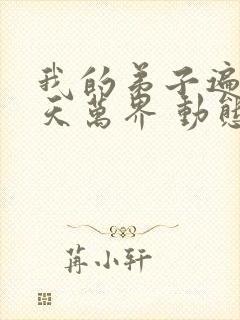 我的弟子遍
天萬界 動態
苒小轩